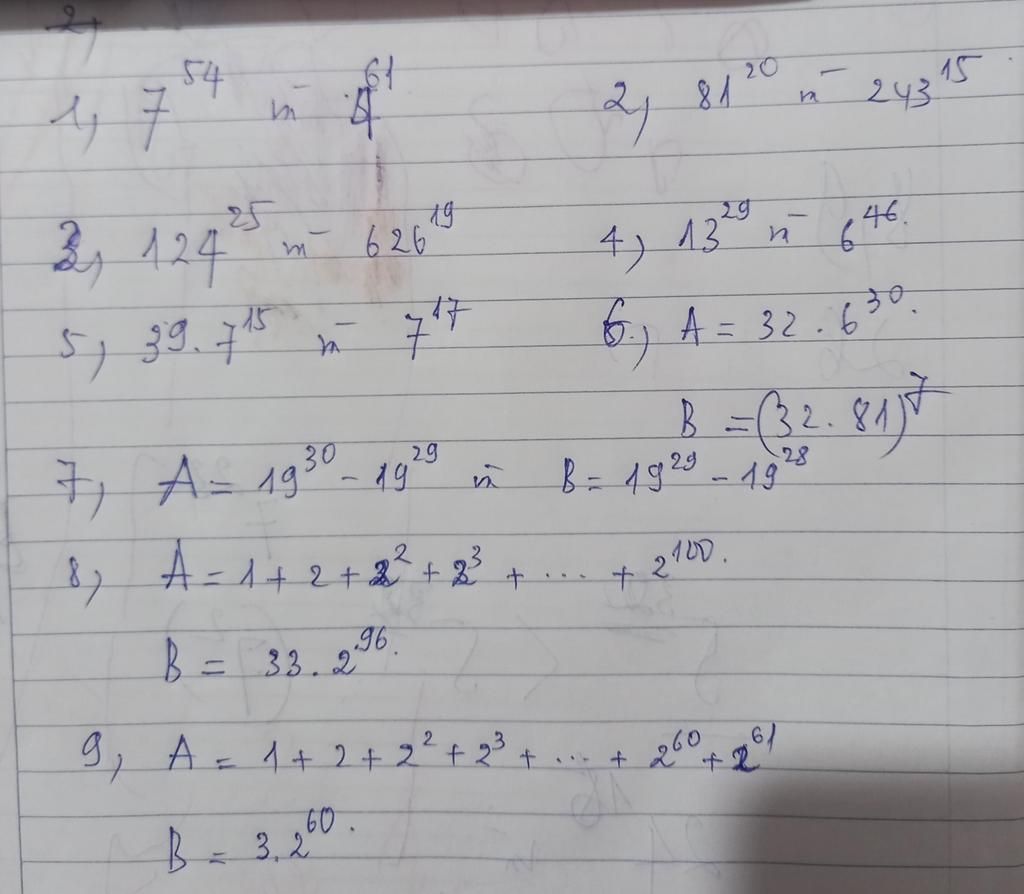 2,
1, 7^54 và 4^61 2, 81^20 và 243^15
3, 124^25 và 626^19 4, 13^29 và 6^46.
5, 39.7^15 và 7^17 6, A = 32.6^30.
B = (32.81)^7
7, A = 19^30 - 19^29 và B = 19^29 - 19^28
8, A = 1 + 2 + 2^2 + 2^3 + ... + 2^100.
B = 33.2^96.
9, A = 1 + 2 + 2^2 + 2^3 + ... + 2^60 + 2^61
B = 3.2^60.